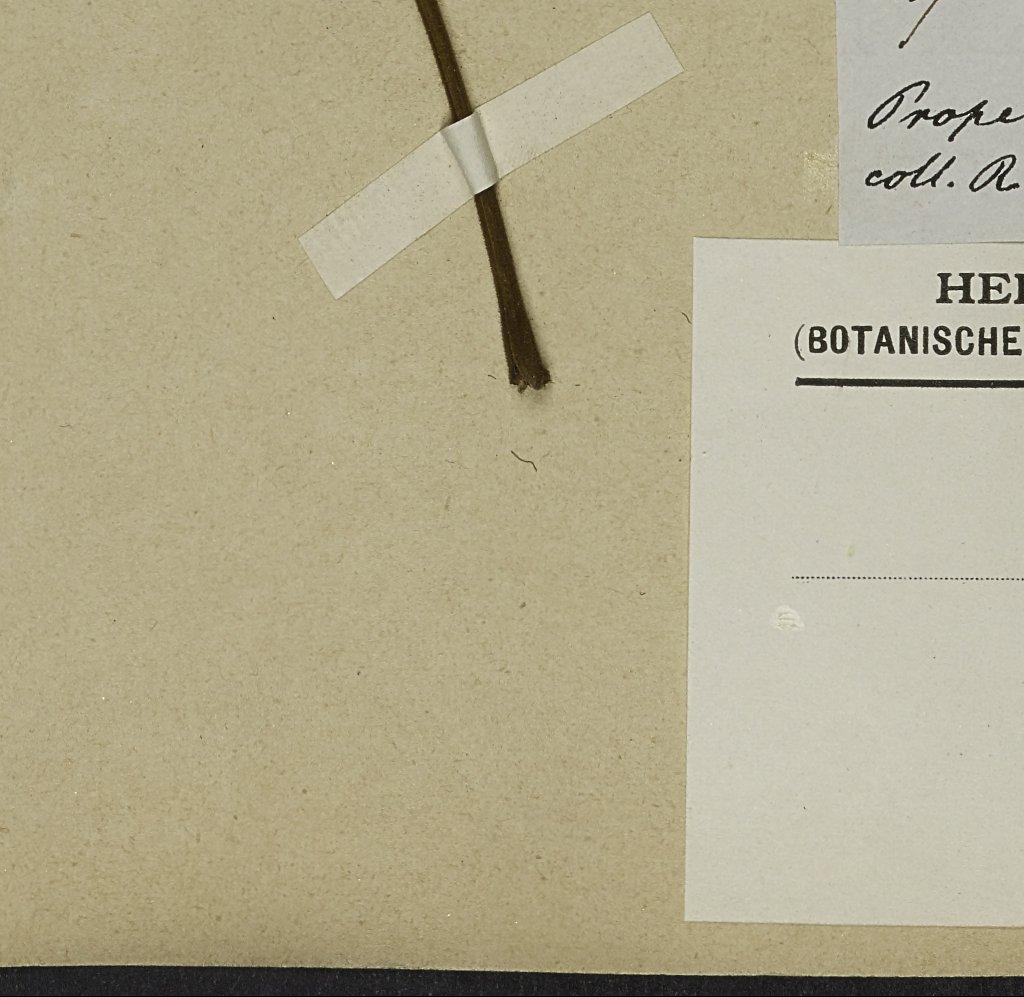 Prope
coll. R
HE
(BOTANISCHE